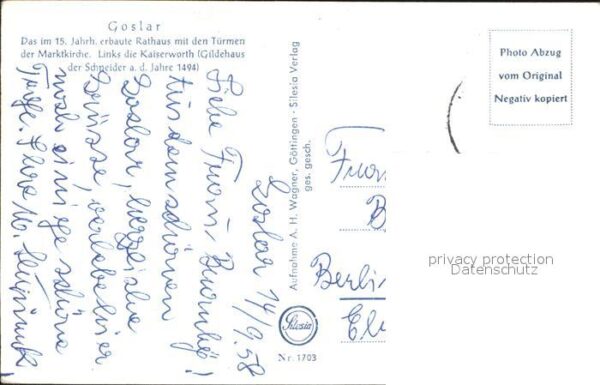 Goslar
Das im 15. Jahrh. erbaute Rathaus mit den Türmen
der Marktkirche. Links die Kaiserworth (Gildehaus
der Schneider a. d. Jahre 1494)
Goslar 14/9.58
Liebe Frau
Aus dem schönen
Goslar, herzliche
Grüsse, verlebe hier
noch einige schöne
Tage. Ihre M.
Aufnahme A. H. Wagner, Göttingen - Silesia Verlag
ges. gesch.
Silesia
Nr. 1703
Photo Abzug
vom Original
Negativ kopiert
Frau
B
Berlin
privacy protection
Datenschutz